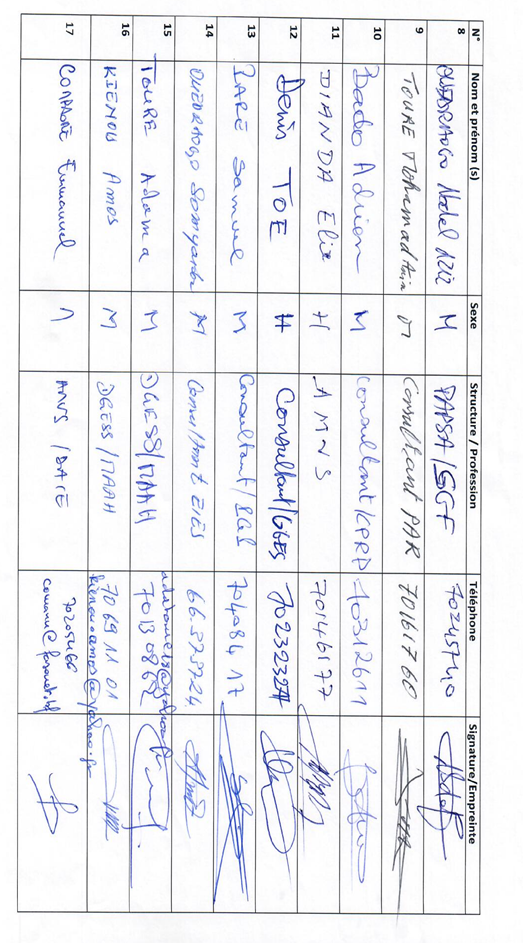 N° Nom et prénom (s) Sexe Structure / Profession Téléphone Signature/Empreinte
8 OUEDRAOGO Abdel AZIZ M PAPSA/SGF 70245740
9 TOURE Mohamad M Consultant PAR 70161760
10 Bado Adrien M Consultant/CPRP 70312611
11 DIANDA Elie H AMVS 70146177
12 Denis TOE H Consultant/GES 70232327
13 BARE Samuel M Consultant/PGS 70408417
14 OUEDRAOGO M Consultant EIES 66.373724
15 TOURE Adama M DGESS/MAAH 70130862
16 KIENOU Amos M DGESS/MAAH 70691101
kienouamos@yahoo.fr
17 COMPAORE Emmanuel M AMVS / 70205466